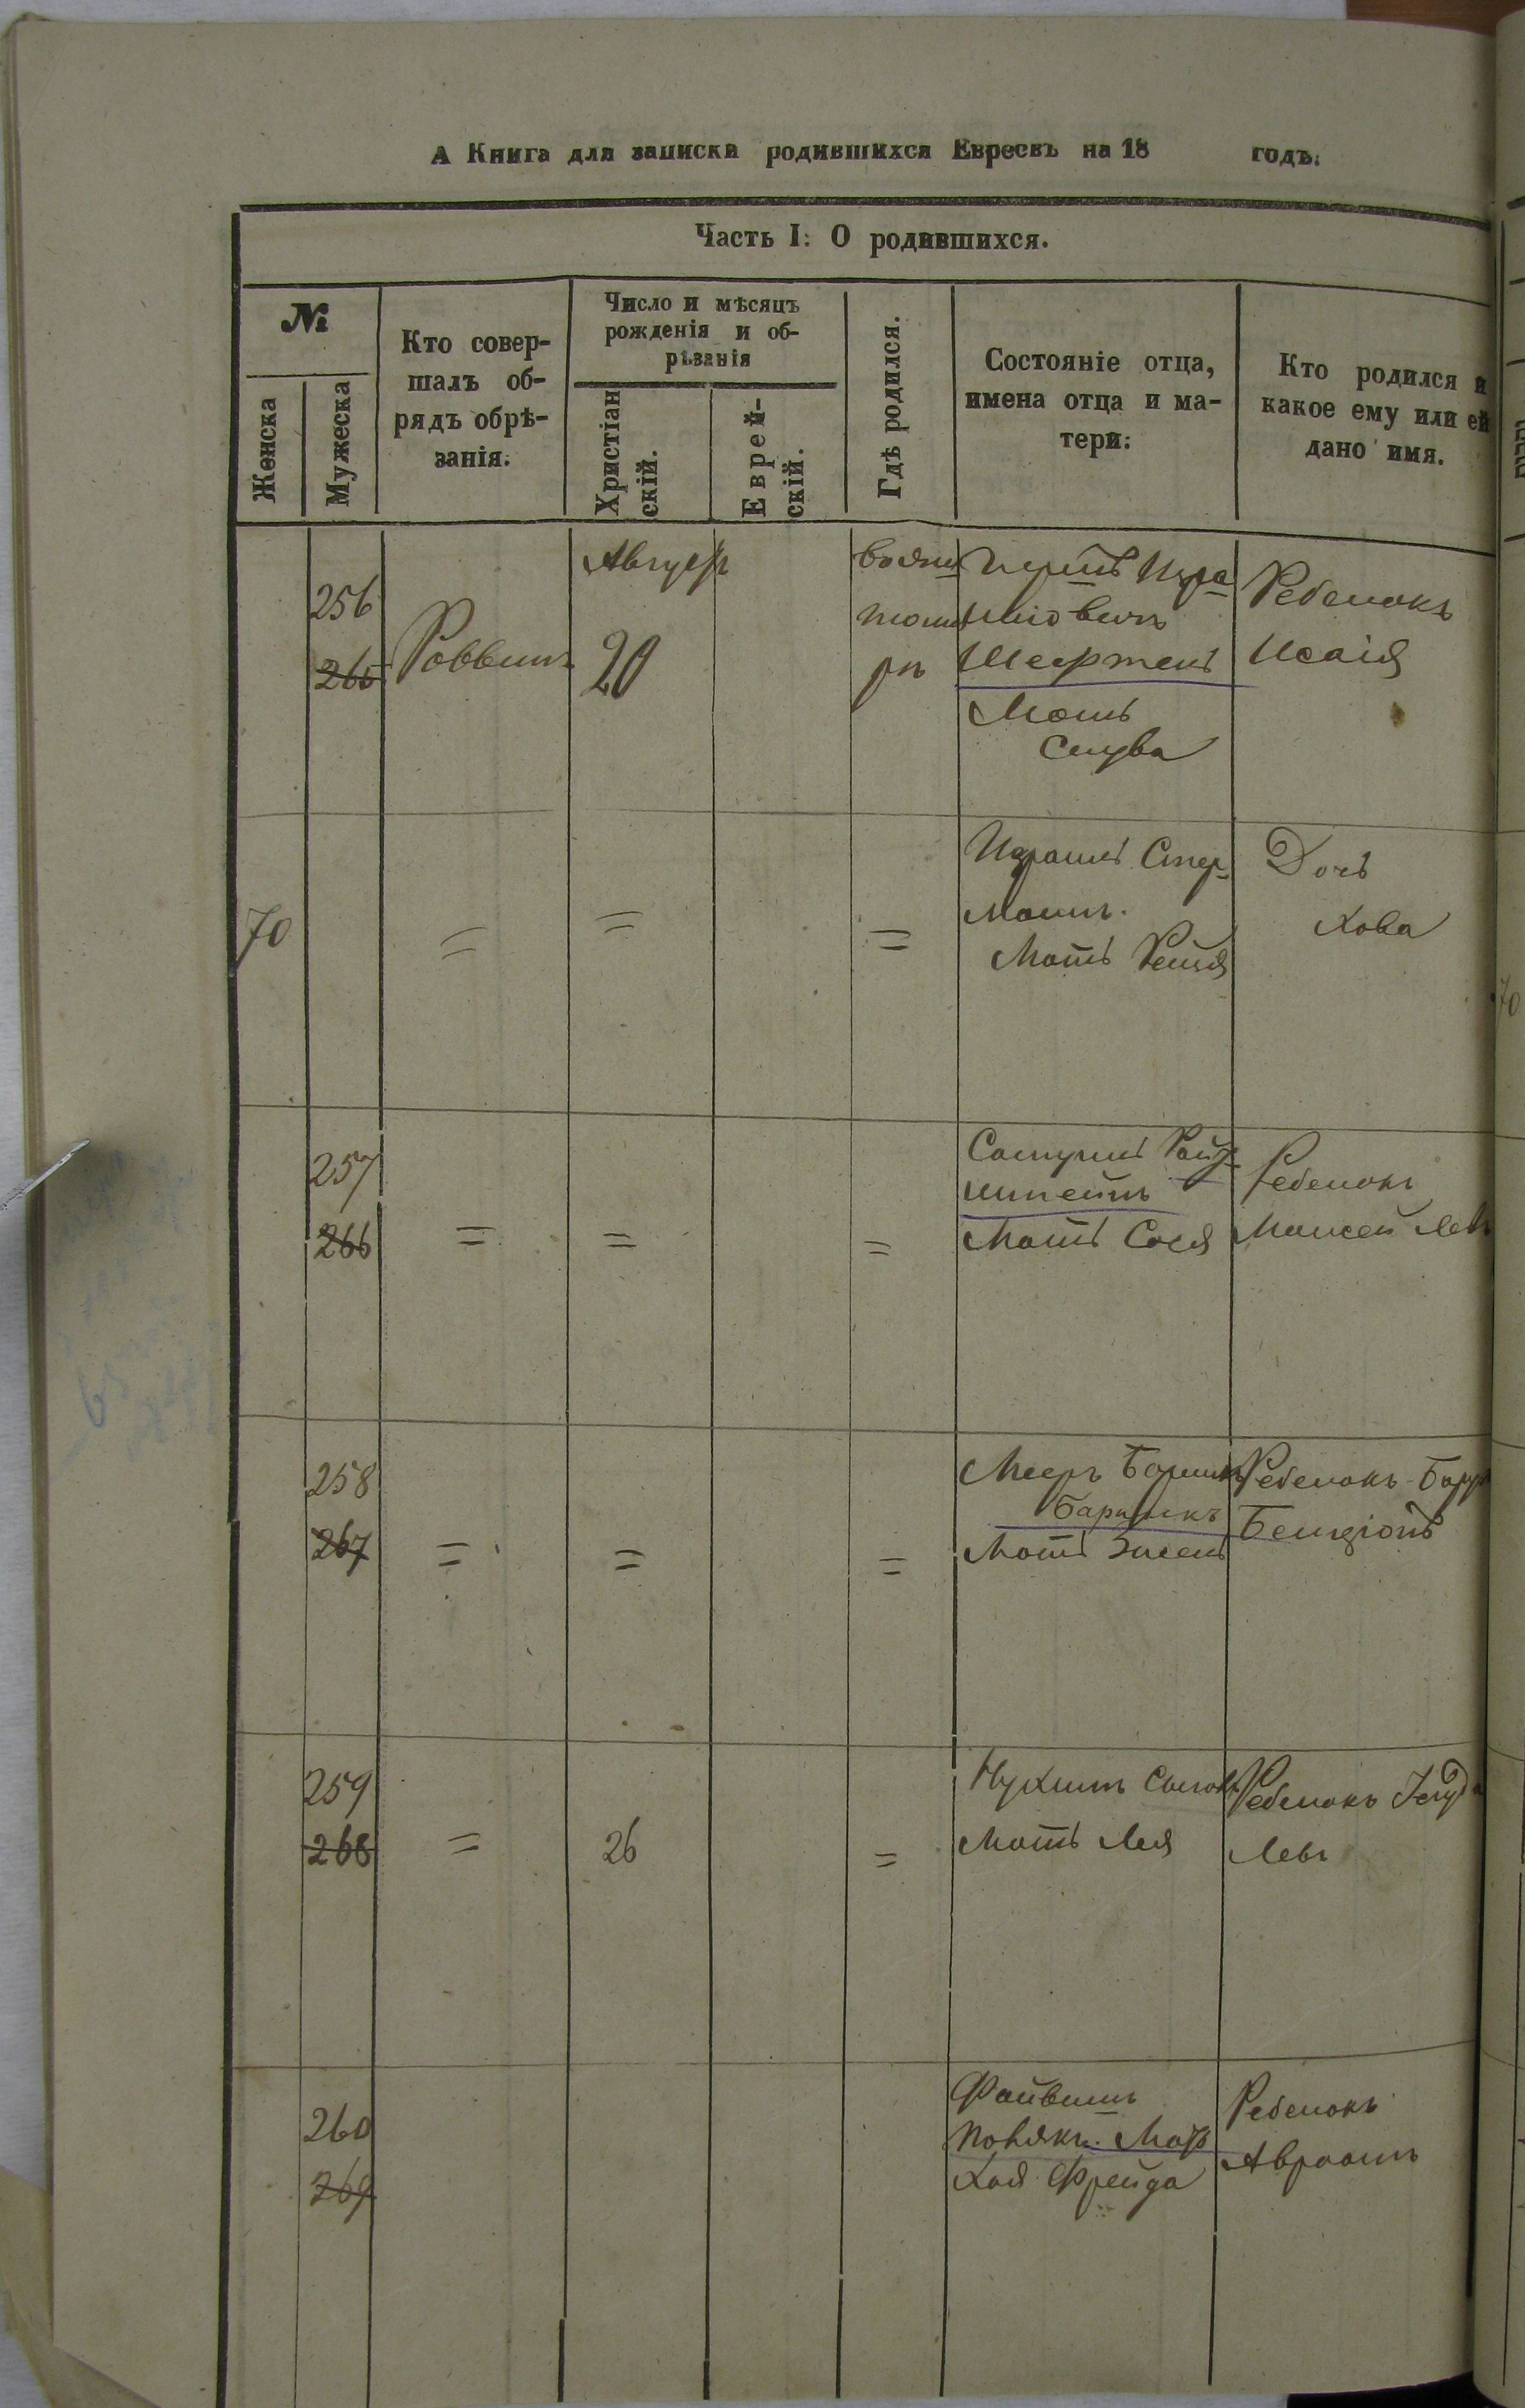 А Книга для записки родившихся Евреевъ на 18 годъ.
Часть I: О родившихся.
№
Женска
Мужеска
Кто совер-
шалъ об-
рядъ обрѣ-
занія.
Число и мѣсяцъ
рожденія и об-
рѣзанія
Христіан
скій.
Еврей-
скій.
Гдѣ родился.
Состояніе отца,
имена отца и ма-
тери:
Кто родился и
какое ему или ей
дано имя.
256
265
Раввинъ
Август
20
Изра
Мать
Ребенокъ
Исаія
70
=
=
=
Израиль
Мать Рейзя
Дочь
Хова
257
266
=
=
=
Самуилъ
штейнъ
Мать Сося
Ребенокъ
Моисей Левъ
258
267
=
=
=
Мееръ
Мать
Ребенокъ
Бенціонъ
259
268
=
26
=
Нухимъ
Мать Лея
Ребенокъ
Левъ
260
269
Файвишъ
Мать
Хая Фрейда
Ребенокъ
Авраамъ
70